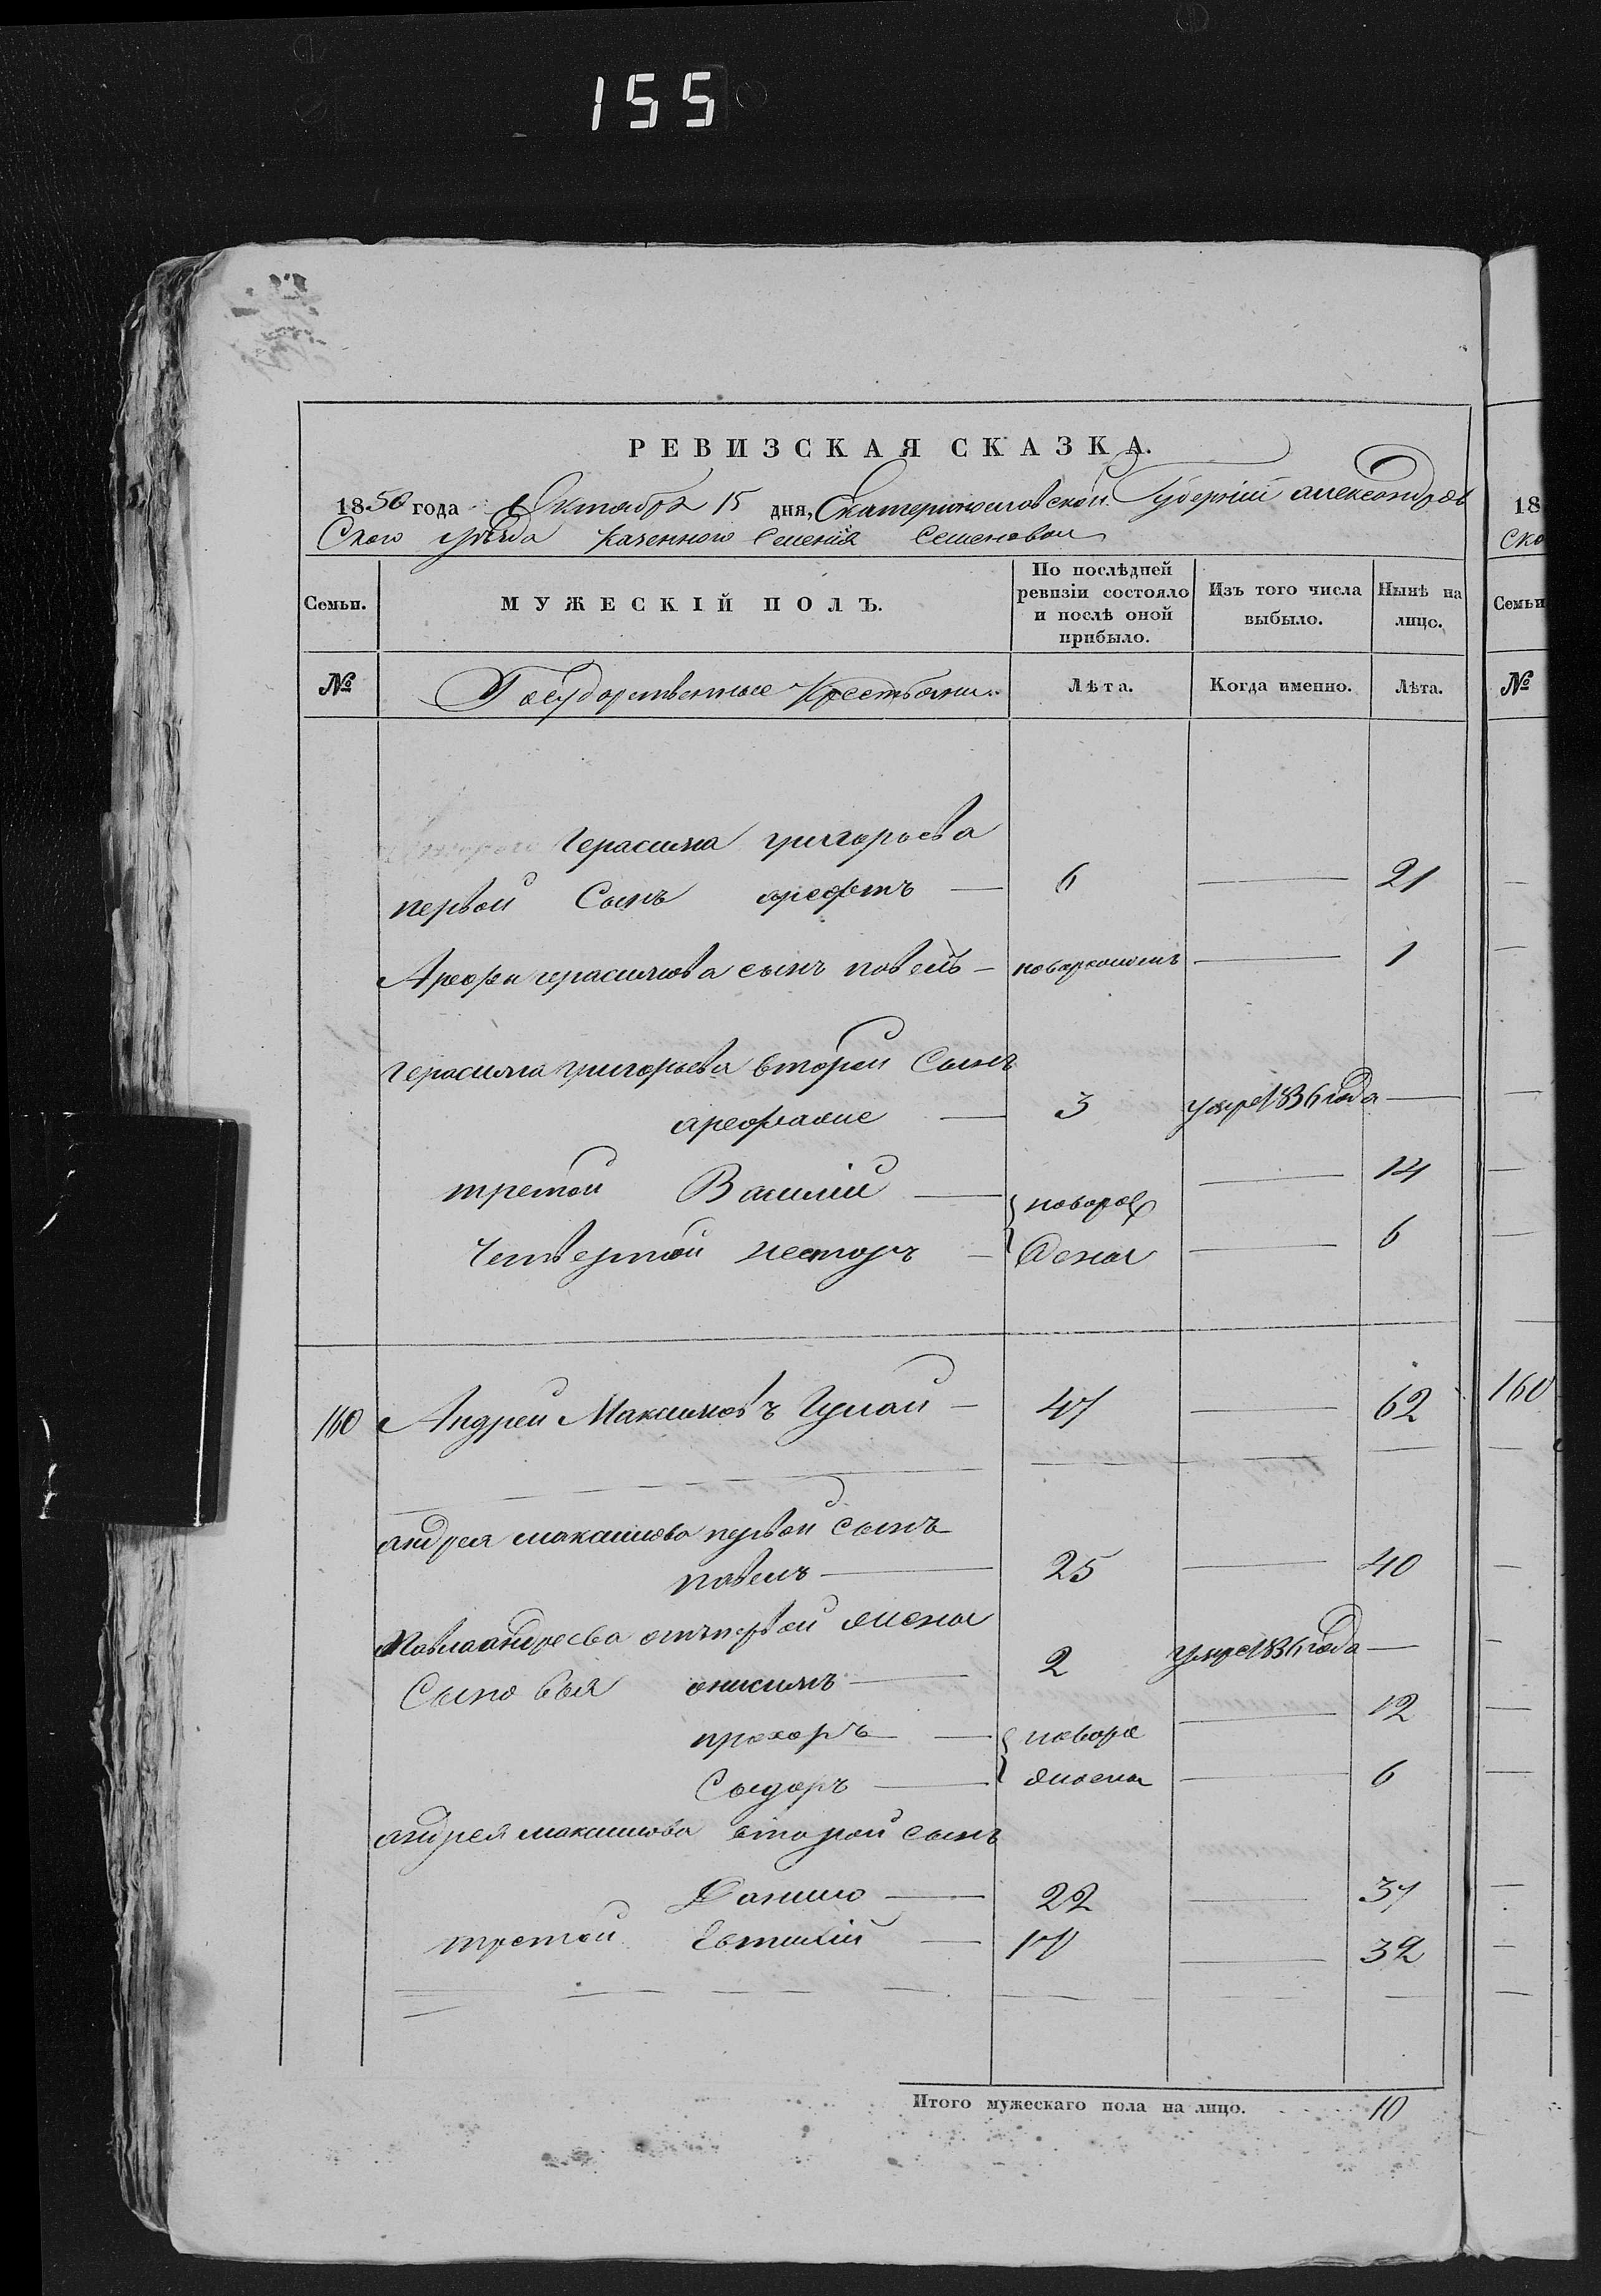 155
РЕВИЗСКАЯ СКАЗКА.
1850 года Октября 15 дня, Екатеринославской Губернии александров
Ского уезда казенного Селения Семеновки
Семьи. МУЖЕСКІЙ ПОЛЪ. По послѣдней ревизіи состояло и послѣ оной прибыло. Изъ того числа выбыло. Нынѣ на лицо.
№ Государственные Крестьяне Лѣта. Когда именно. Лѣта.
Герасима григорьева
первой Сынъ арефтъ — 6 — 21
Арефы герасимова сынъ павелъ — новорожденъ — 1
Герасима григорьева второй Сынъ
3 умре 1836 года —
третой Василій — новорож — 14
Четвертой несторъ — дены — 6
160 Андрей Максимовъ Гулай — 47 — 62
андрея максимова первой сынъ
павелъ — 25 — 40
Павла андреева отъ первой жены
Сыновья онисимъ — 2 умре 1836 года —
прохоръ — новоро — 12
Сыдоръ — жденны — 6
андрея максимова второй сынъ
Данило — 22 — 37
третой Евтихій — 17 — 32
Итого мужескаго пола на лицо. 10
18
Ско
Семьи
№
160